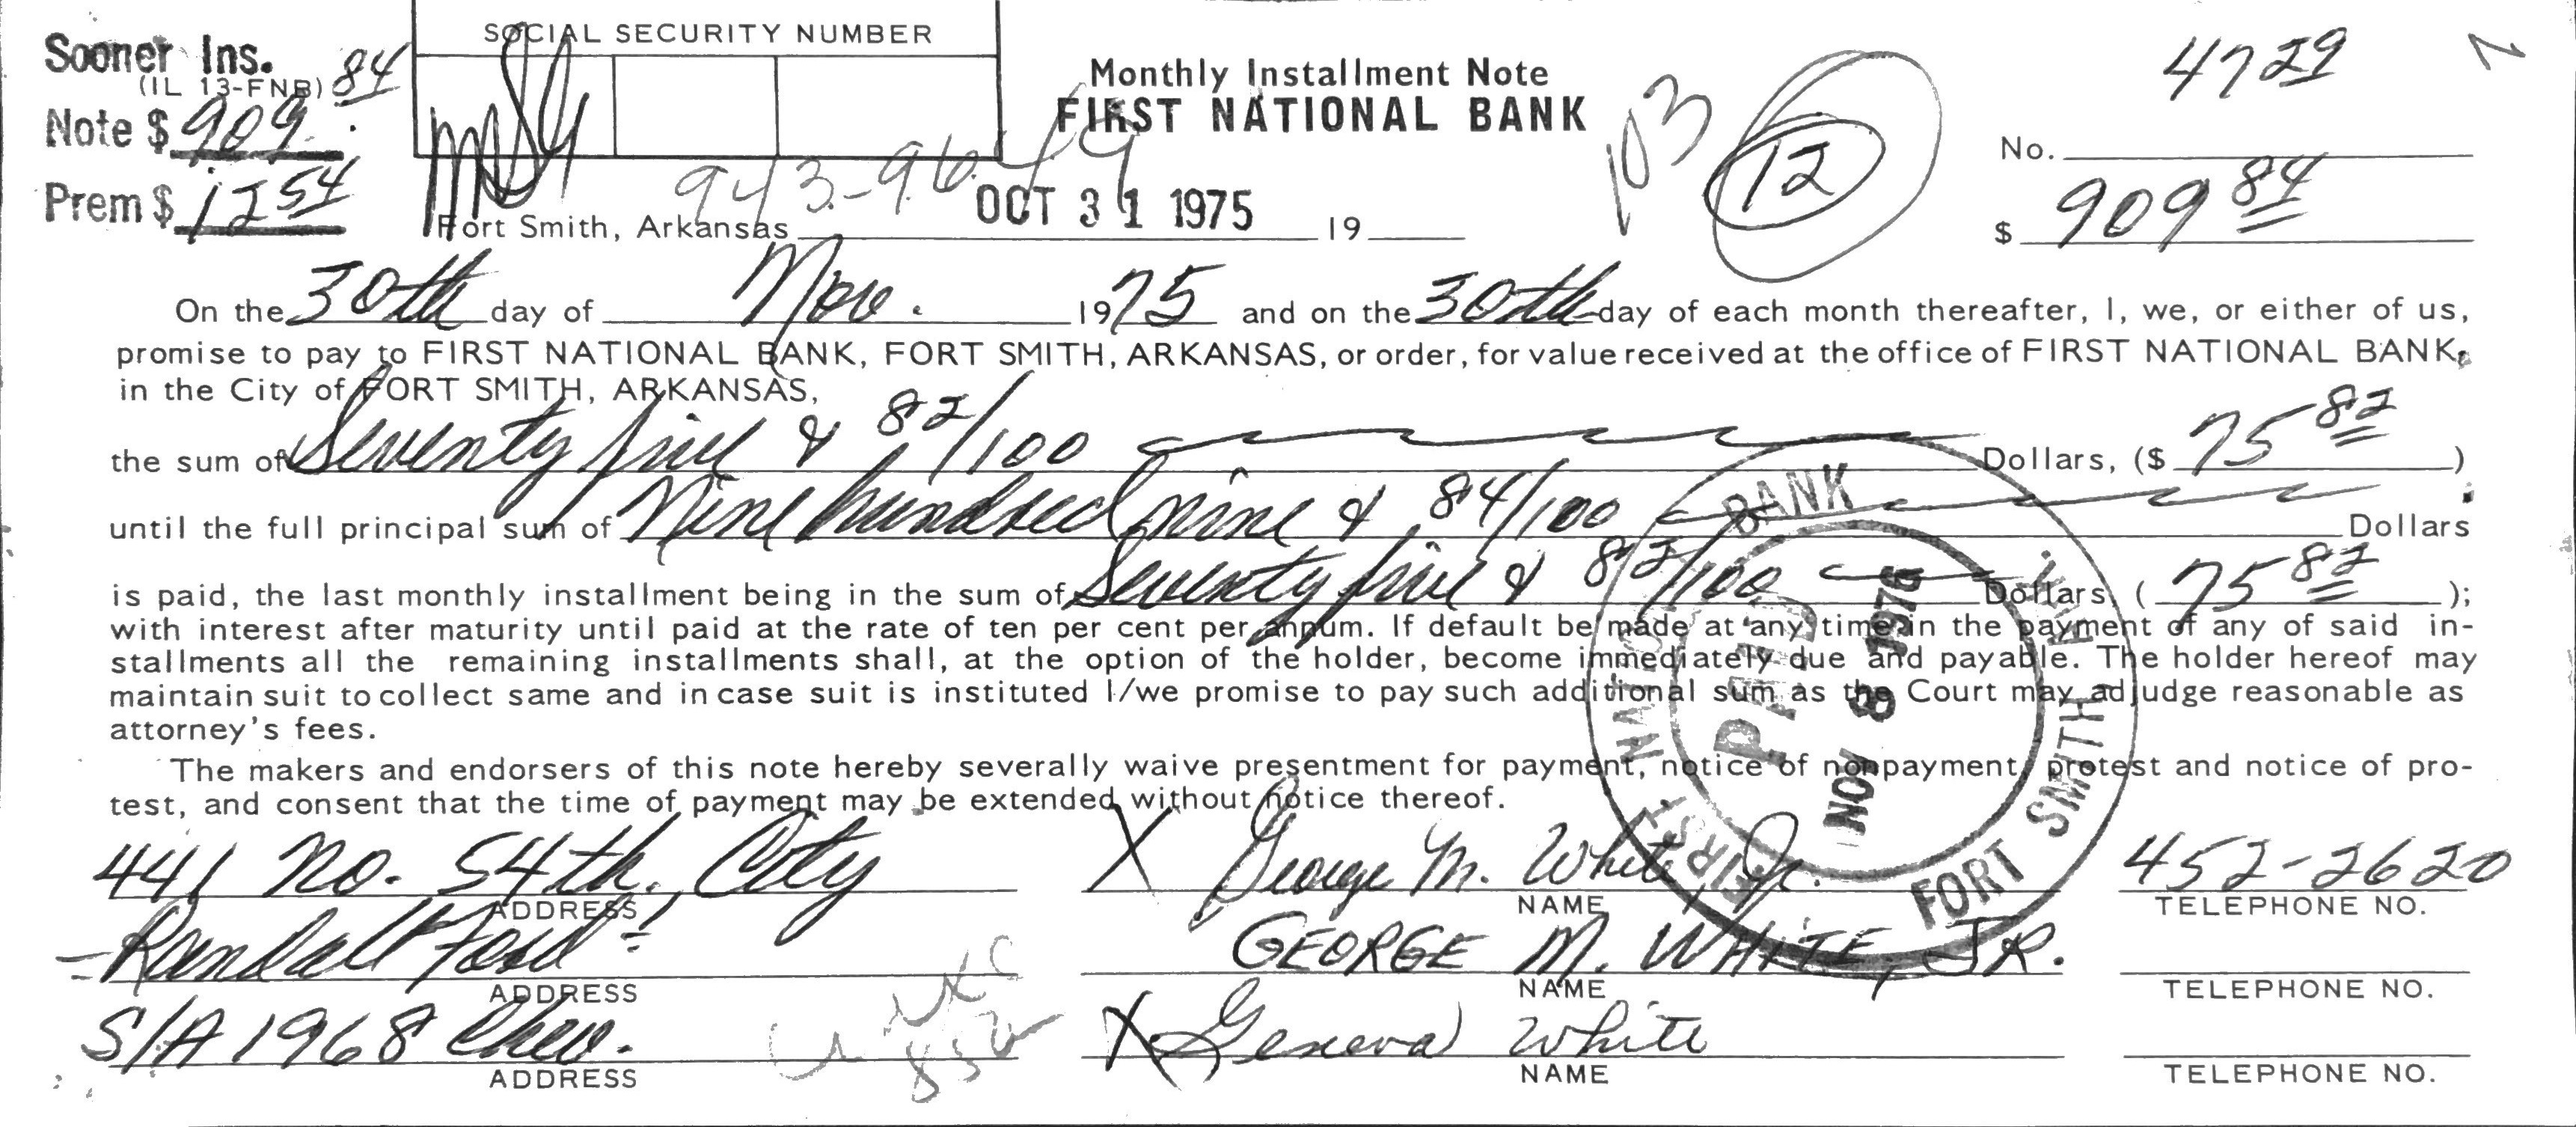 SOCIAL SECURITY NUMBER
Sooner Ins.
(IL 13-FNB)
Note $ 909 84
Prem $ 12 54
Monthly Installment Note
FIRST NATIONAL BANK
103
12
4729
No.
$ 909 84
Fort Smith, Arkansas OCT 31 1975 19
On the 30th day of Nov. 1975 and on the 30th day of each month thereafter, I, we, or either of us,
promise to pay to FIRST NATIONAL BANK, FORT SMITH, ARKANSAS, or order, for value received at the office of FIRST NATIONAL BANK,
in the City of FORT SMITH, ARKANSAS,
the sum of Seventy five & 82/100 Dollars, ($ 75 82 )
until the full principal sum of Nine hundred nine & 84/100 Dollars
is paid, the last monthly installment being in the sum of Seventy five & 82/100 Dollars, ( 75 82 );
with interest after maturity until paid at the rate of ten per cent per annum. If default be made at any time in the payment of any of said in-
stallments all the remaining installments shall, at the option of the holder, become immediately due and payable. The holder hereof may
maintain suit to collect same and in case suit is instituted I/we promise to pay such additional sum as the Court may adjudge reasonable as
attorney's fees.
The makers and endorsers of this note hereby severally waive presentment for payment, notice of nonpayment, protest and notice of pro-
test, and consent that the time of payment may be extended without notice thereof.
441 No. 54th, City X George M. White, Jr. 452-2620
ADDRESS NAME TELEPHONE NO.
Randall Ford GEORGE M. WHITE, JR.
ADDRESS NAME TELEPHONE NO.
S/A 1968 Chev. X Geneva White
ADDRESS NAME TELEPHONE NO.
FIRST NATIONAL BANK
PAID
NOV 8 1976
FORT SMITH